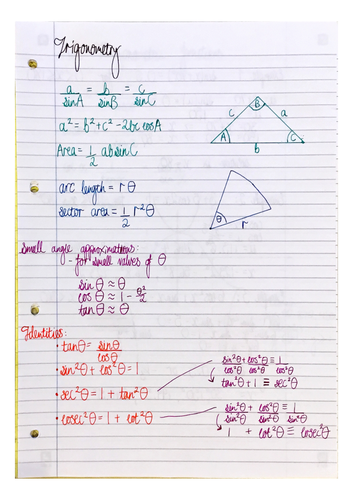 Trigonometry
a/sinA = b/sinB = c/sinC
a² = b² + c² - 2bc cosA
Area = 1/2 absinC
B
c a
A C
b
arc length = rθ
sector area = 1/2 r²θ
θ r
Small angle approximations:
- for small values of θ
sinθ ≈ θ
cosθ ≈ 1 - θ²/2
tanθ ≈ θ
Identities:
• tanθ = sinθ/cosθ
• sin²θ + cos²θ = 1
• sec²θ = 1 + tan²θ
• cosec²θ = 1 + cot²θ
sin²θ/cos²θ + cos²θ/cos²θ ≡ 1/cos²θ
tan²θ + 1 ≡ sec²θ
sin²θ/sin²θ + cos²θ/sin²θ ≡ 1/sin²θ
1 + cot²θ ≡ cosec²θ